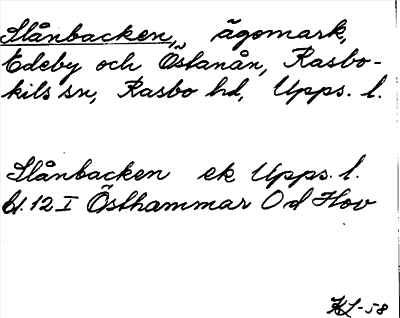 Slånbacken, ägomark,
Edeby och Östanån, Rasbo-
kils sn, Rasbo hd, Upps. l.
Slånbacken ek Upps. l.
bl. 12 I Östhammar Od Hov
KL-58